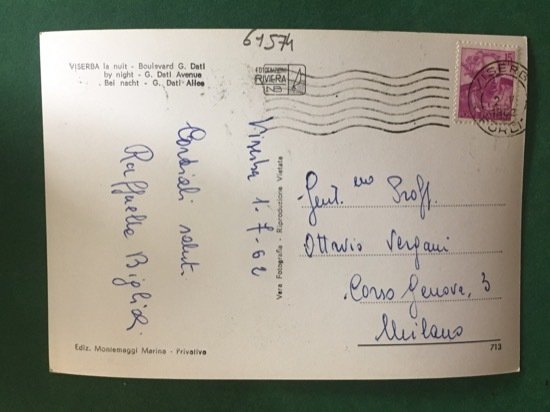 61574
VISERBA la nuit - Boulevard G. Dati
by night - G. Dati Avenue
Bei nacht - G. Dati Allee
FOTOEDIZIONI
RIVIERA
VISERBA
Viserba 1-7-62
Cordiali saluti
Raffaella
Vera Fotografia - Riproduzione Vietata
Gent.mo Proff.
Ottavio Vergani
Corso Genova, 3
Milano
Ediz. Montemaggi Marina - Privativa
713